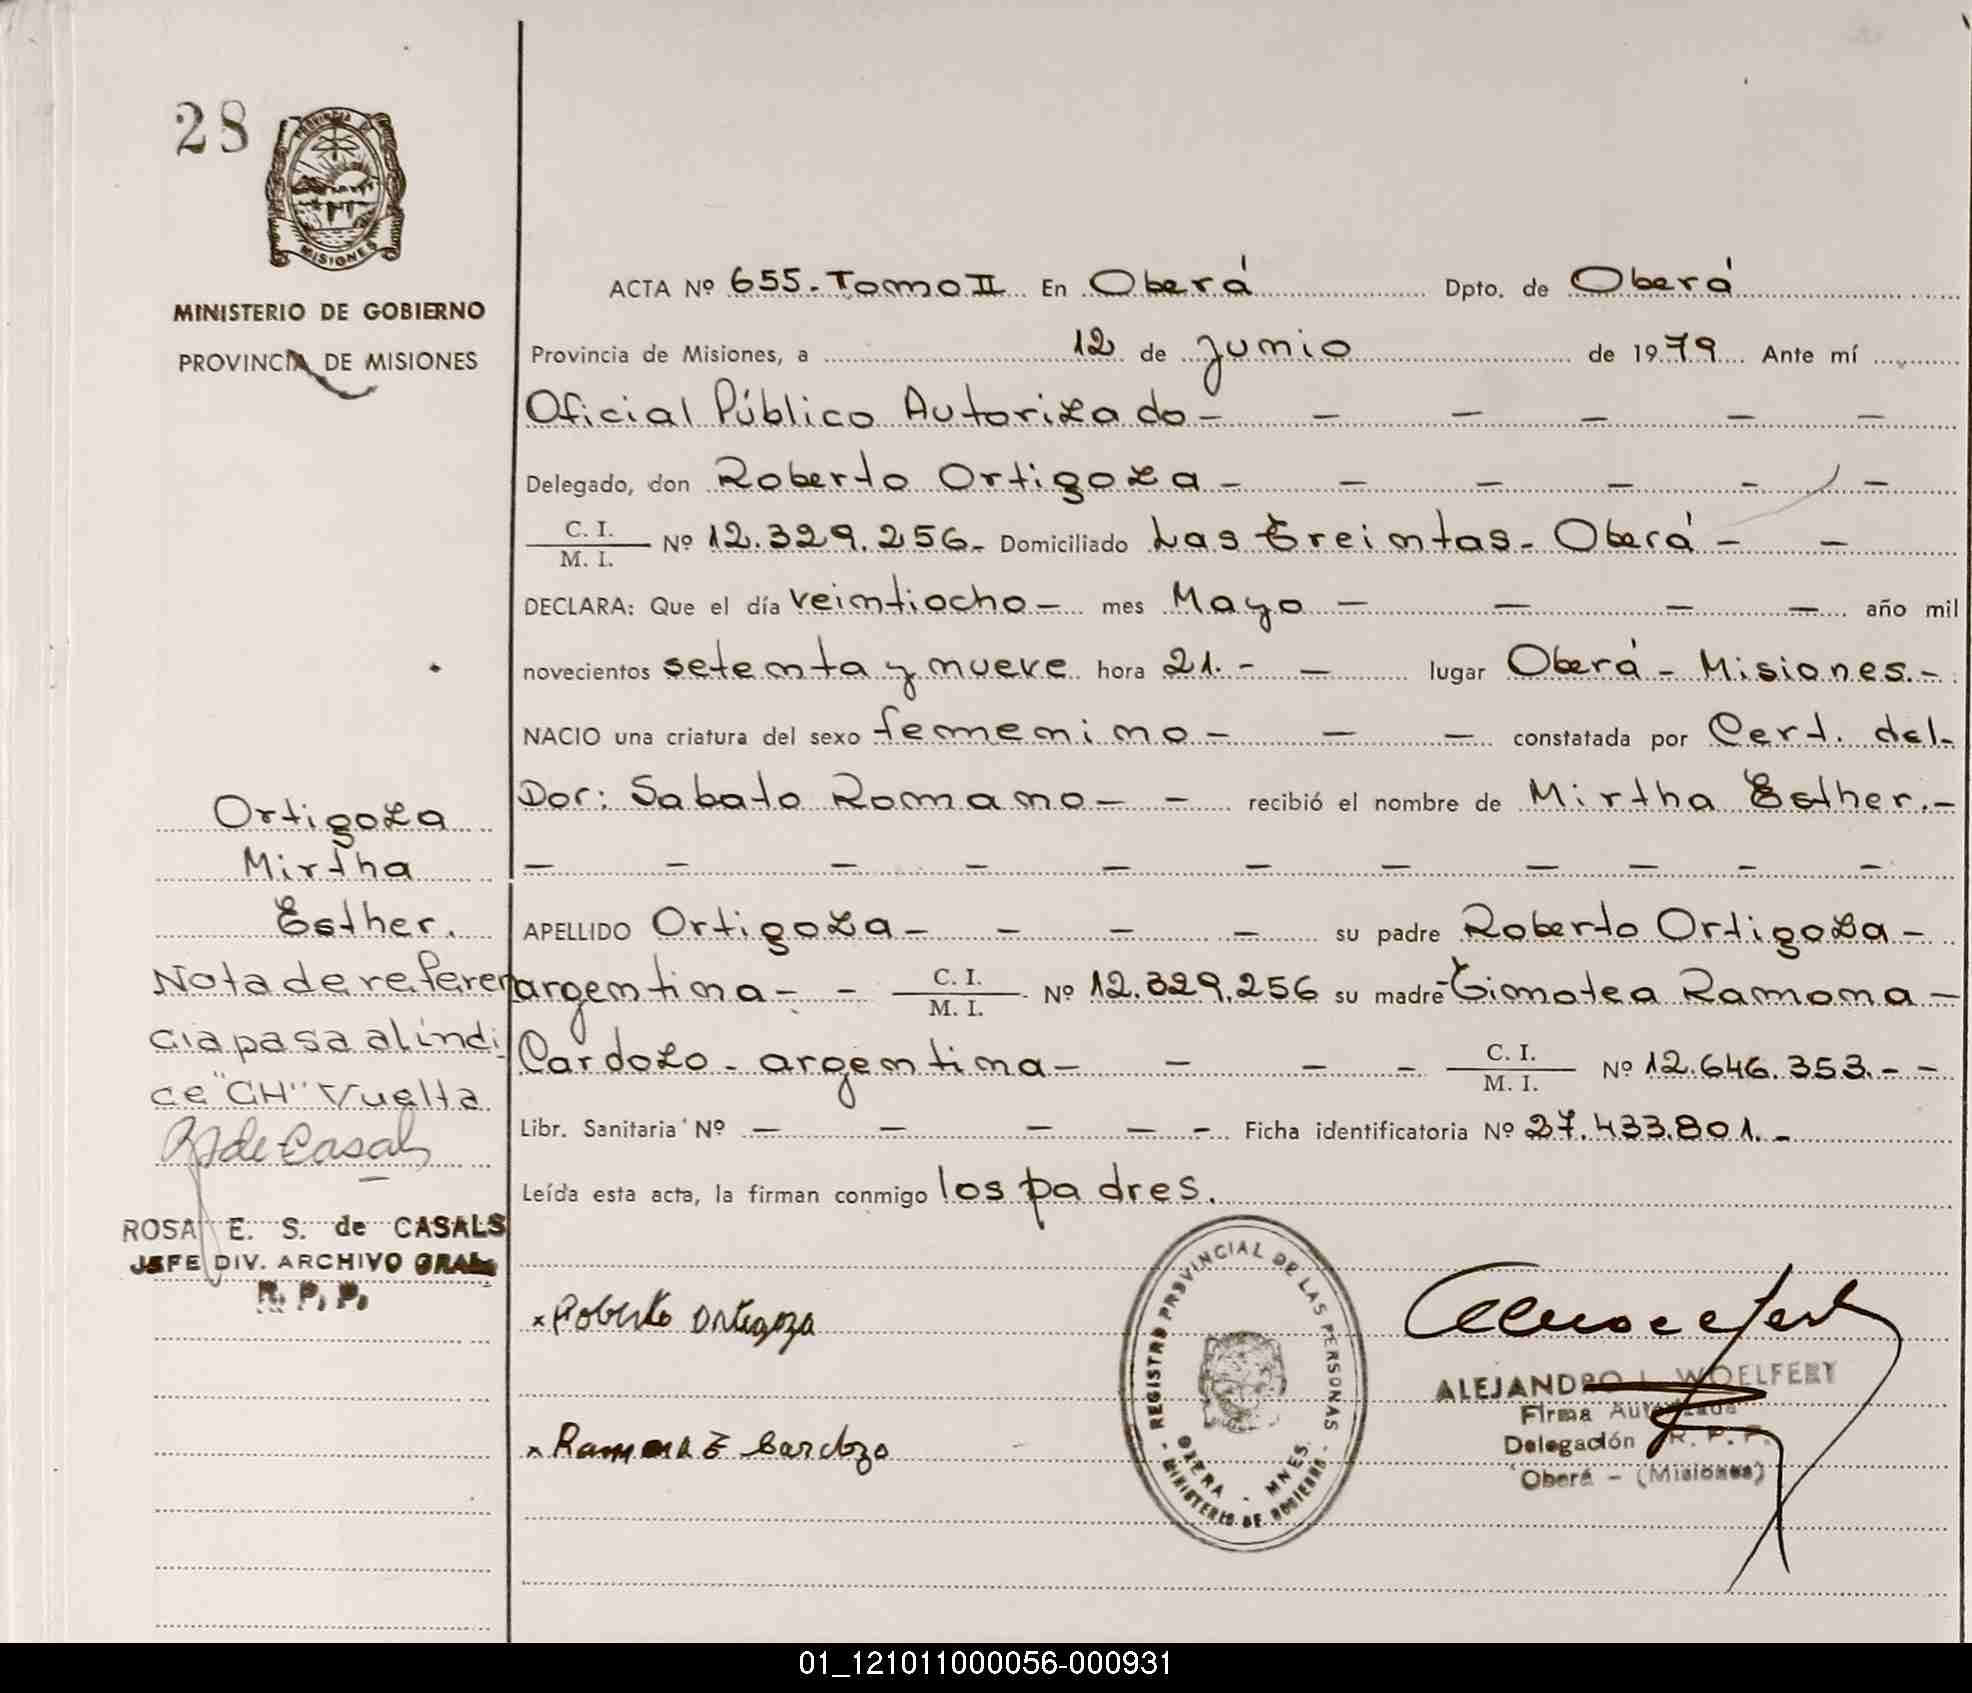 28
PROVINCIA DE
MISIONES
MINISTERIO DE GOBIERNO
PROVINCIA DE MISIONES
ACTA Nº 655.-Tomo II En Oberá Dpto. de Oberá
Provincia de Misiones, a 12 de Junio de 1979 Ante mí
Oficial Público Autorizado - - - - - -
Delegado, don Roberto Ortigoza - - - - - -
C. I.
M. I. Nº 12.329.256.- Domiciliado Las Treintas.- Oberá - -
DECLARA: Que el día veintiocho - mes Mayo - - - - año mil
novecientos setenta y nueve hora 21.- - lugar Oberá - Misiones.-
NACIO una criatura del sexo femenino - - - constatada por Cert. del-
Dor: Sabato Romano - - recibió el nombre de Mirtha Esther.-
- - - - - - - - - - -
APELLIDO Ortigoza - - - - su padre Roberto Ortigoza -
argentina - - C. I.
M. I. Nº 12.329.256 su madre Timotea Ramona -
Cardozo - argentina - - - - C. I.
M. I. Nº 12.646.353.- -
Libr. Sanitaria Nº - - - - - Ficha identificatoria Nº 27.433.801.-
Leída esta acta, la firman conmigo los padres.
Ortigoza
Mirtha
Esther.
Nota de referen
cia pasa al índi
ce "CH" Vuelta
R de Casals
ROSA E. S. de CASALS
JEFE DIV. ARCHIVO GRAL
R. P. P.
x Roberto Ortigoza
x Ramona T Cardozo
REGISTRO PROVINCIAL DE LAS PERSONAS
OBERA - MNES.
- MINISTERIO DE GOBIERNO -
ALEJANDRO L. WOELFERT
Firma Autorizada
Delegación R. P. P.
Oberá - (Misiones)
01_121011000056-000931